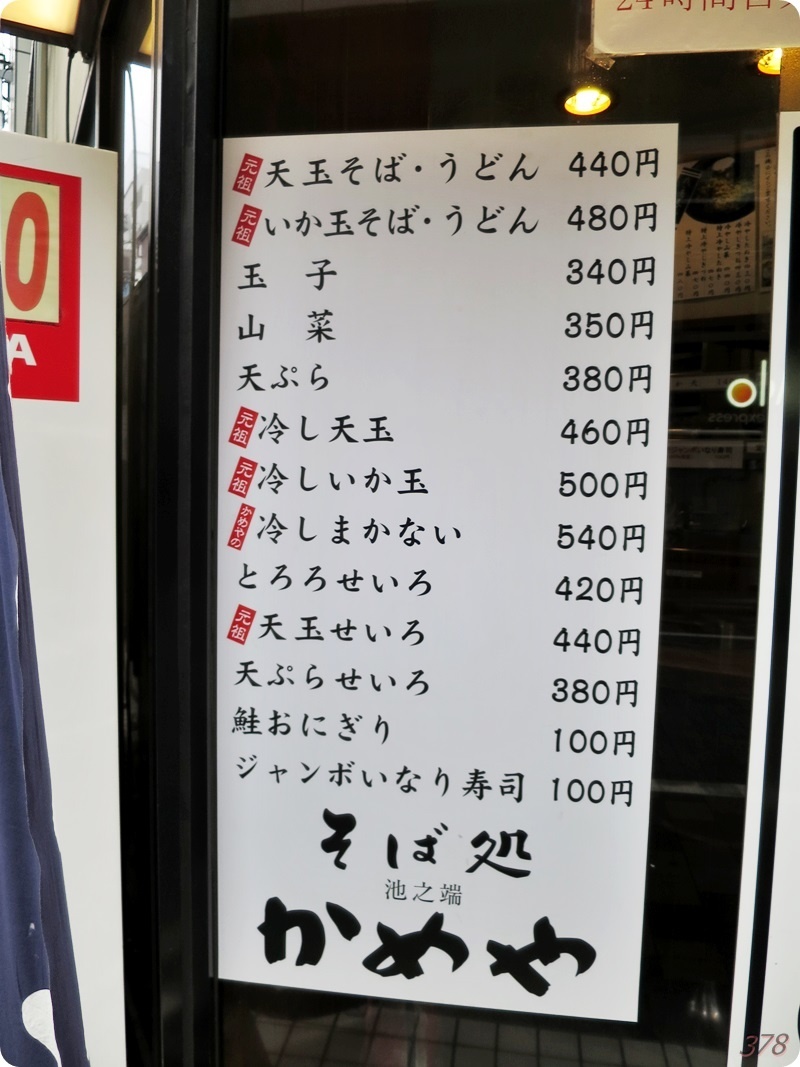 24時間営
元祖 天玉そば・うどん 440円
元祖 いか玉そば・うどん 480円
玉子 340円
山菜 350円
天ぷら 380円
元祖 冷し天玉 460円
元祖 冷しいか玉 500円
かめやの 冷しまかない 540円
とろろせいろ 420円
元祖 天玉せいろ 440円
天ぷらせいろ 380円
鮭おにぎり 100円
ジャンボいなり寿司 100円
そば処
池之端
かめや
0
A
express
378